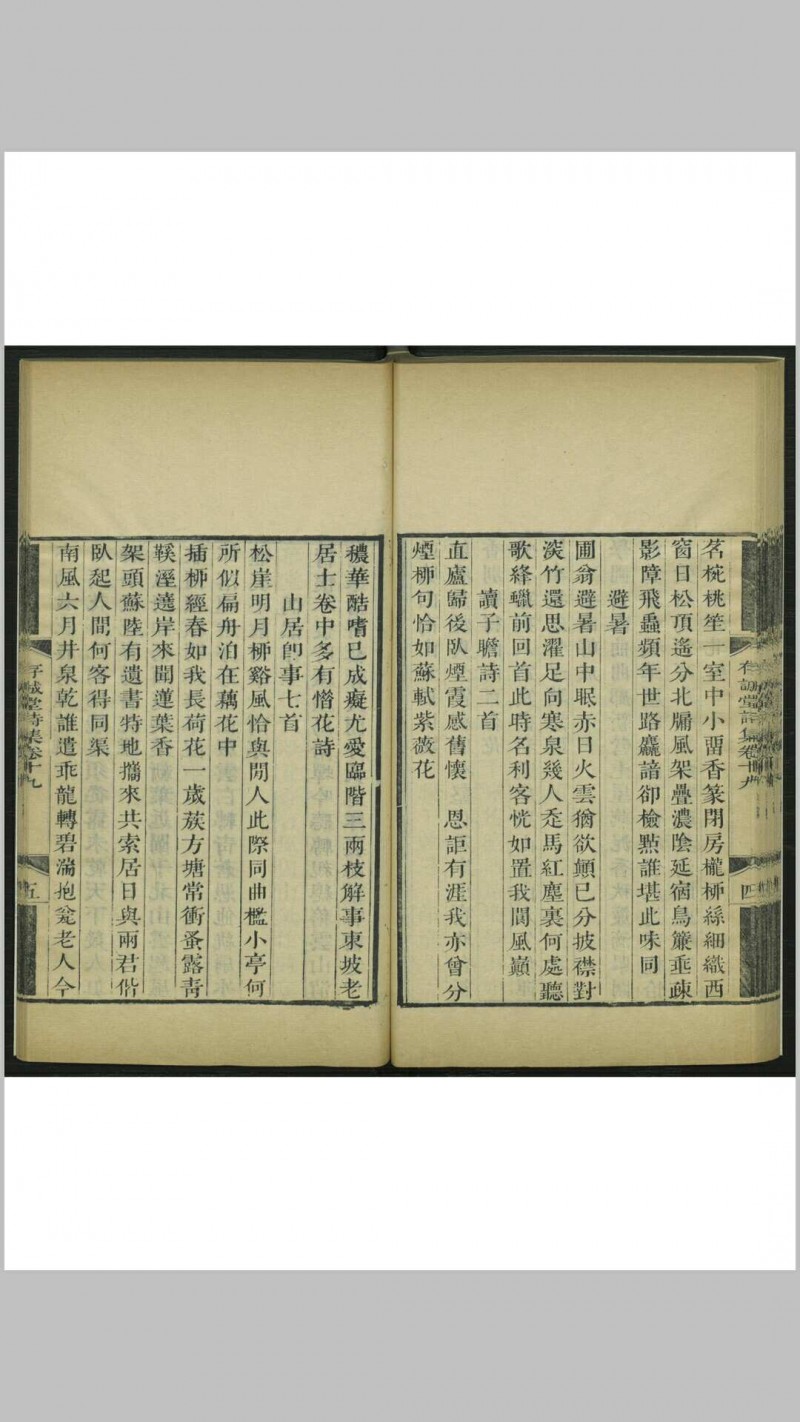 茗椀桃笙一室中小畱香篆閉房櫳柳絲細織西
窗日松頂遙分北牖風架疊濃陰延宿鳥簾垂疎
影障飛蟲頻年世路麤諳卻檢點誰堪此味同
避暑
圃翁避暑山中眠赤日火雲猶欲顛已分披襟對
淡竹還思濯足向寒泉幾人走馬紅塵裏何處聽
歌絳蠟前回首此時名利客恍如置我閬風巔
讀子瞻詩二首
直廬歸後臥煙霞感舊懷 恩詎有涯我亦曾分
煙柳句恰如蘇軾紫薇花
存誠堂詩集卷十九
四
穠華酷嗜已成癡尤愛臨階三兩枝解事東坡老
居士卷中多有惜花詩
山居卽事七首
松崖明月柳谿風恰與閒人此際同曲檻小亭何
所似扁舟泊在藕花中
插柳經春如我長荷花一歲蔟方塘常衝蚤露靑
鞵溼薳岸來聞蓮葉香
架頭蘇陸有遺書特地攜來共索居日與兩君偕
臥起人間何客得同渠
南風六月井泉乾誰遣乖龍轉碧湍抱瓮老人今
存誠堂詩集卷十九
五